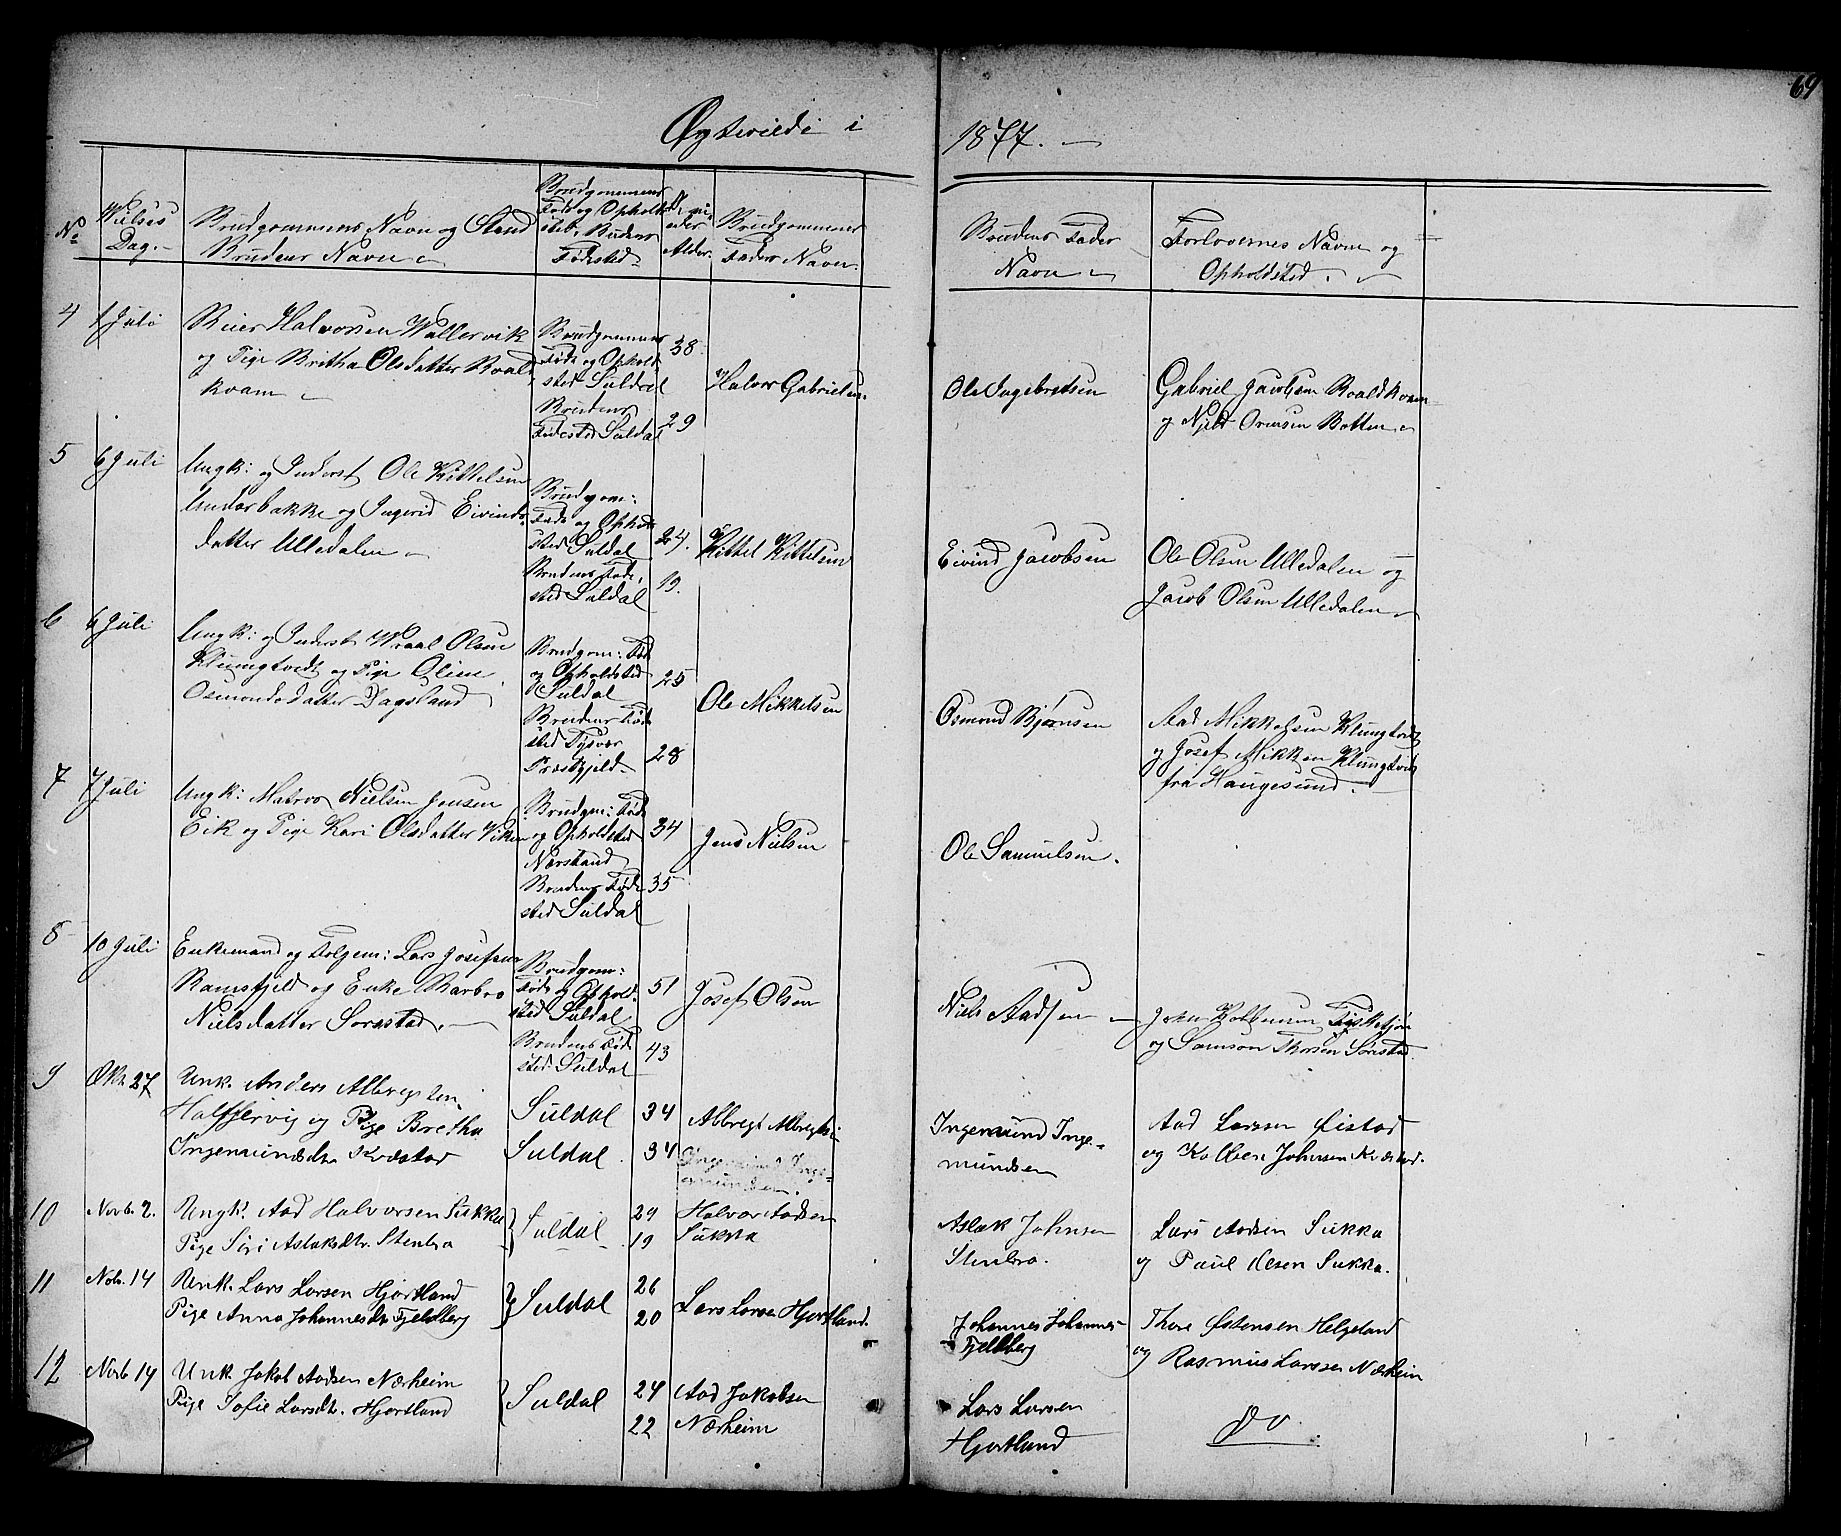 69
Ægteviede i 1877. —
No
Vielses Dag. —
Brudgommens Navn og Stand
Brudens Navn
Brudgommens
Føde og Opholds
sted, Brudens
Fødested
Alder.
Brudgommens
Faders Navn
Brudens Fader
Navn
Forlovernes Navn og
Opholdsted.
4 1 Juli
Reier Halvorsen Vallervik
og Pige Britha Olsdatter Roald
kvam
Brudgommens
Føde og Ophold
sted Suldal
Brudens
Fødested Suldal
38.
29
Halvor Gabrielsen
Ole Ingebretsen
Gabriel Jacobsen Roaldkvam
og Njeld Ormsen Botten
5 6 Juli
Ungk: og Inderst Ole Kittelsen
Underbakke og Ingerid Eivinds
datter Ulledalen
Brudgom:
Føde og Ophold
sted Suldal
Brudens Føde
sted Suldal
24.
19.
Kittel Kittelsen
Eivind Jacobsen
Ole Olsen Ulledalen og
Jacob Olsen Ulledalen
6 6 Juli
Ungk: og Inderst Wraal Olsen
Klungtvedt og Pige Oline
Osmondsdatter Dagsland
Brudgom: Føde
og Opholdsted
Suldal
Brudens Føde
sted Tysvær
Præstgjeld
25
28
Ole Mikkelsen
Osmond Bjørnsen
Aad Mikkelsen Klungtvedt
og Josef Mikksen Klungtvedt
fra Haugesund.
7 7 Juli
Ungk: Matros Nielsen Jensen
Eik og Pige Kari Olsdatter Viken
Brudgm: Føde
og Opholdsted
Nærstrand
Brudens Føde
sted Suldal
34
35
Jens Nielsen
Ole Samuelsen.
8 10 Juli
Enkemand og Folgem: Lars Josefsen
Ramsfjeld og Enke Barbro
Nielsdatter Sørestad. —
Brudgom:
Føde og Ophold
sted Suldal
Brudens Fød
sted Suldal
51
43
Josef Olsen
Niels Aadsen —
John Kolbensen Fiskekjøn
og Samson Thorsen Sørestad.
9 Okt. 27
Unk. Anders Albregtsen
Halffjervig og Pige Bretha
Ingemundsdtr Kvæstad
Suldal
Suldal.
34
34
Albregt Albregtsen
Ingemund Inge-
mundsen.
Ingemund Inge-
mundsen
Aad Larssen Eistad
og Kolbein Johnsen Kvæstad.
10 Novb. 2.
Ungk. Aad Halvorsen Sukka
Pige Siri Aslaksdtr. Stenbra
Suldal
29
19
Halvor Aadsen
Sukka
Aslak Johnsen
Stenbra.
Lars Aadsen Sukka
og Paul Olsen Sukka.
11 Nob. 14
Unk. Lars Larsen Hjortland
Pige Anna Johannesdtr Fjeldberg
Suldal
26
20
Lars Larsen Hjortland.
Johannes Johannes-
Fjeldberg
Thore Østensen Helgeland
og Rasmus Larssen Nærheim
12 Novb 14
Unk Jakob Aadsen Nærheim
Pige Sofie Larsdtr. Hjortland
Suldal
24
22
Aad Jakobsen
Nærheim
Lars Larsen
Hjortland
Do